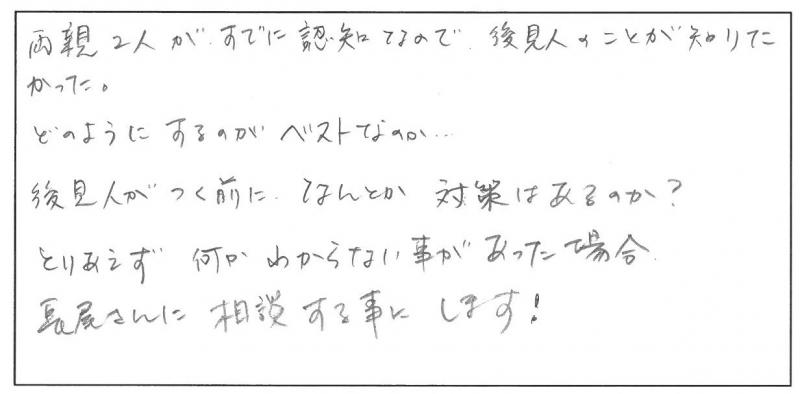 両親2人が、すでに認知なので、後見人のことが知りた
かった。
どのようにするのがベストなのか…
後見人がつく前に、なんとか 対策はあるのか?
とりあえず 何か わからない事があった場合、
長尾さんに 相談する事に します!